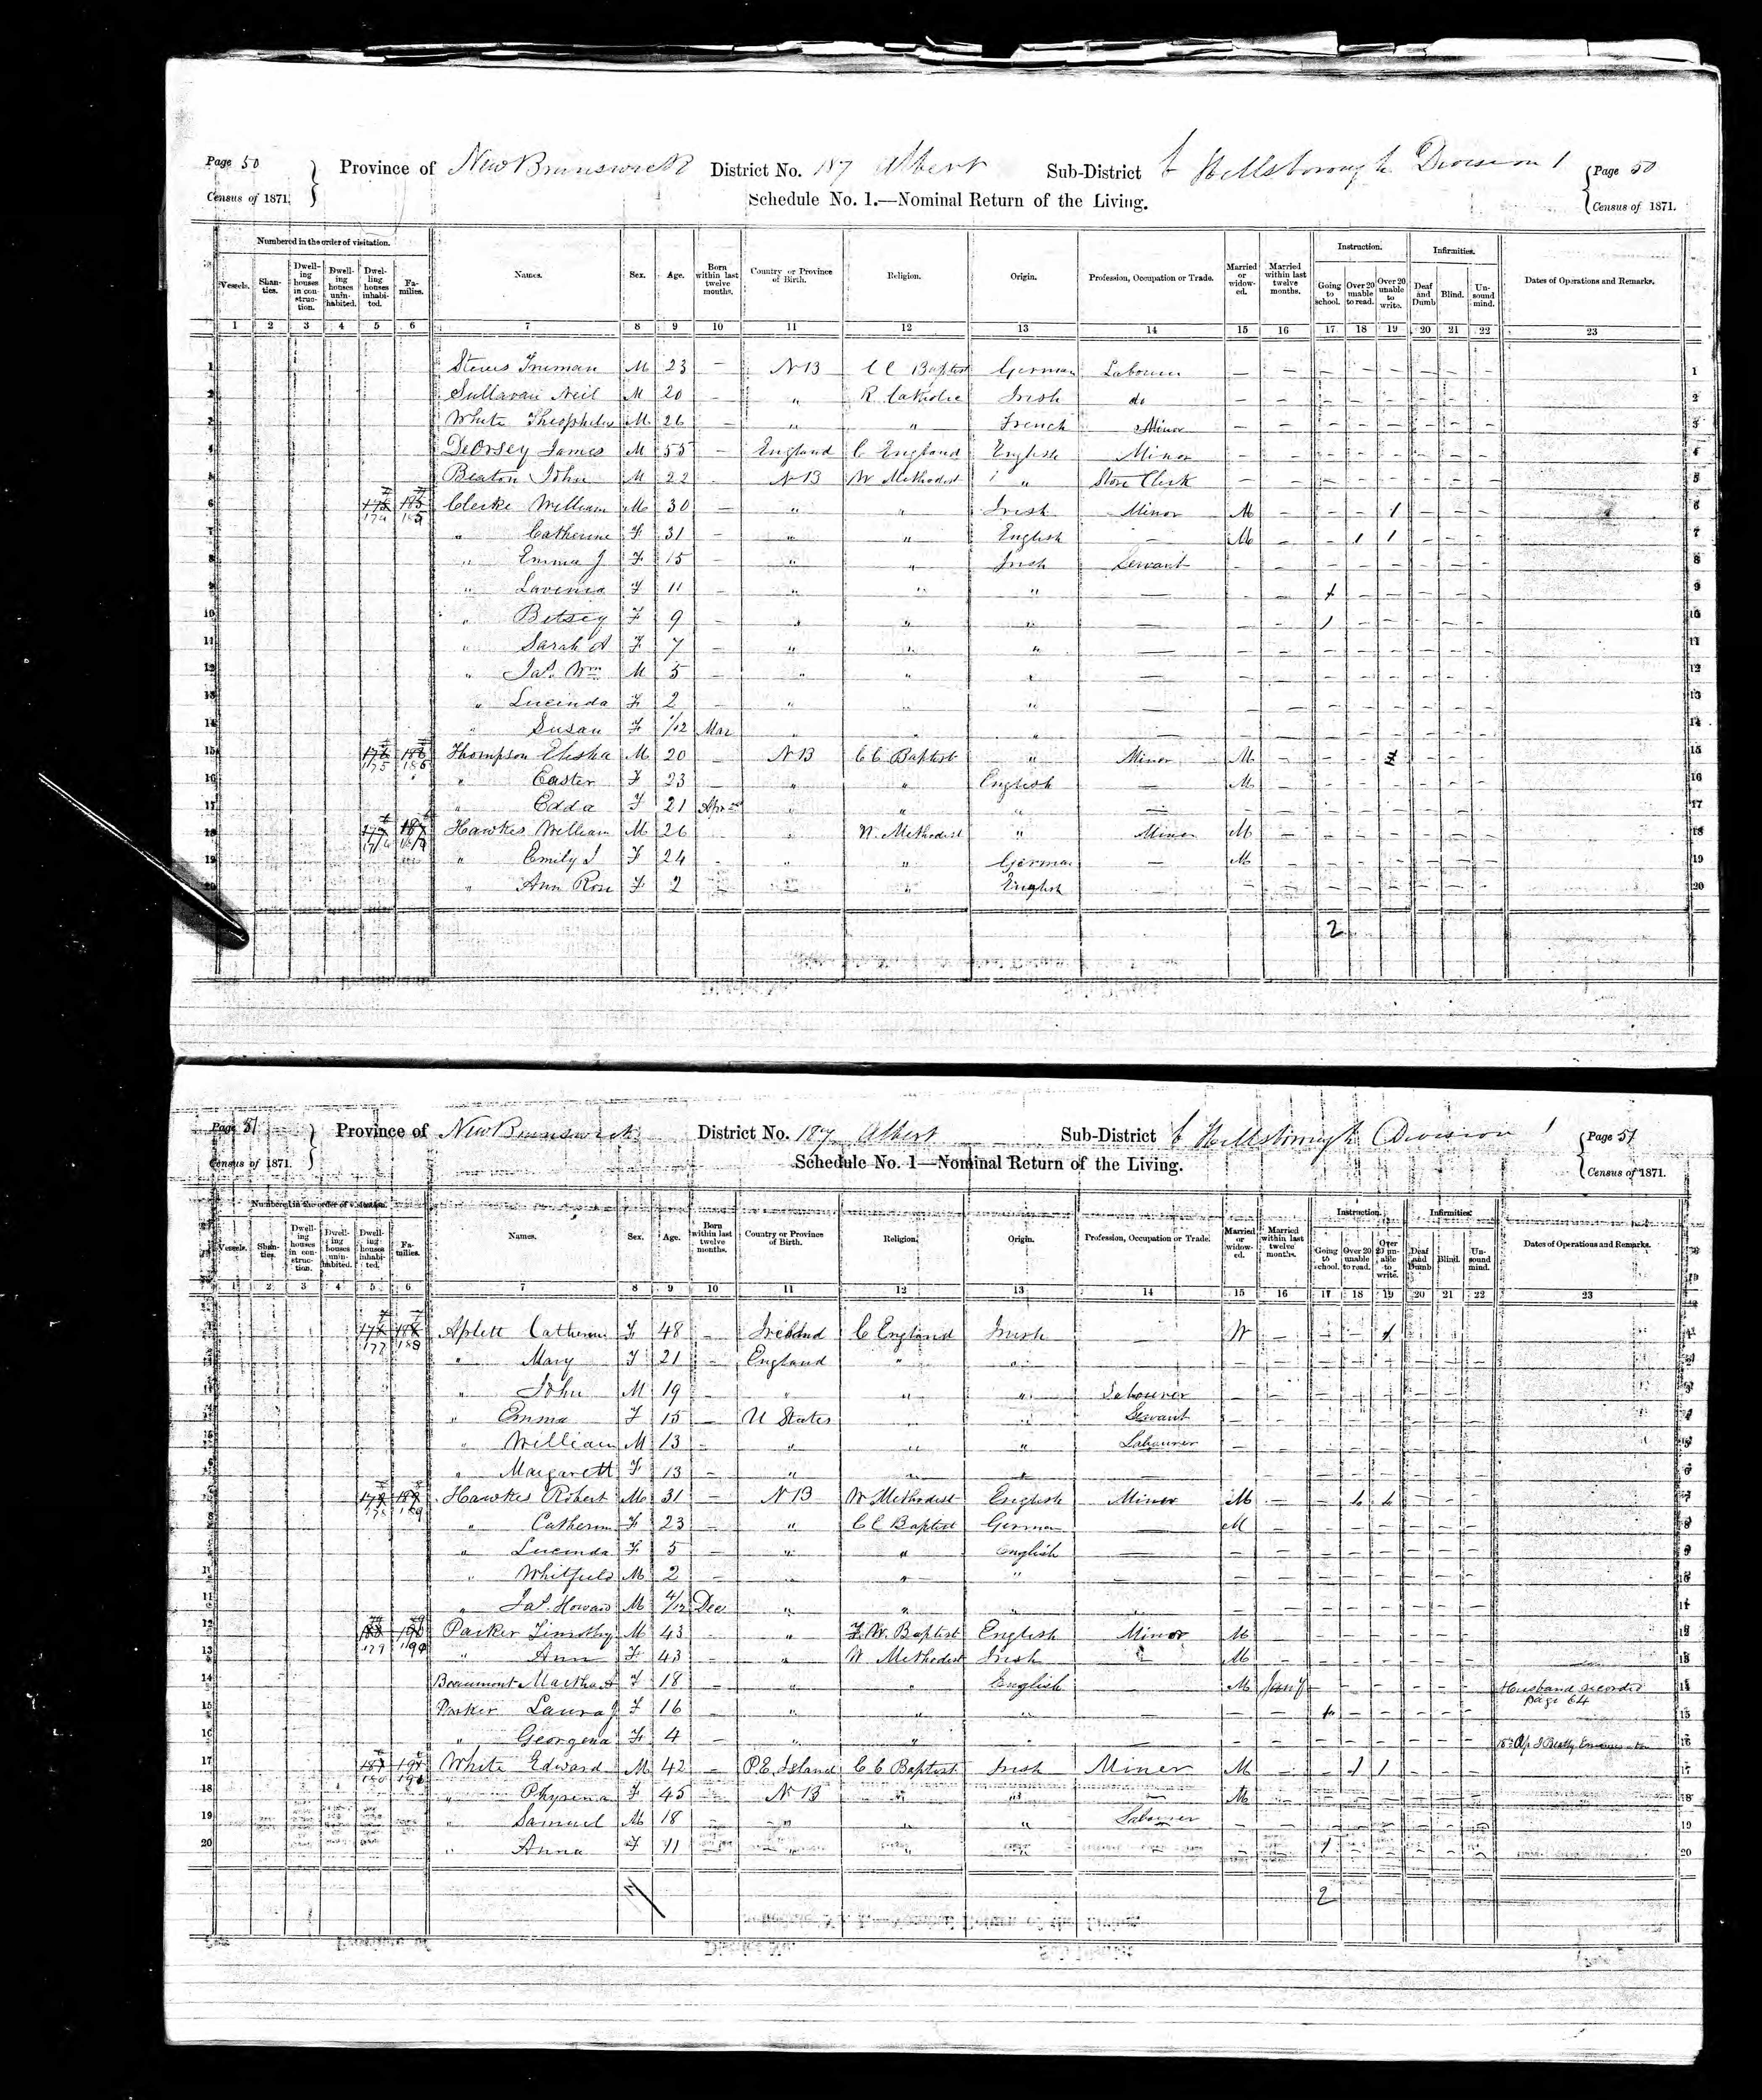 Page 50 Province of New Brunswick District No. 187 Albert Sub-District Hillsborough Division 1 Page 50
Census of 1871. Schedule No. 1.—Nominal Return of the Living. Census of 1871.
Numbered in the order of visitation. Instruction. Infirmities.
Vessels. Shanties. Dwelling houses in construction. Dwelling houses uninhabited. Dwelling houses inhabited. Families. Names. Sex. Age. Born within last twelve months. Country or Province of Birth. Religion. Origin. Profession, Occupation or Trade. Married or widowed. Married within last twelve months. Going to school. Over 20 unable to read. Over 20 unable to write. Deaf and Dumb Blind. Unsound mind. Dates of Operations and Remarks.
1 2 3 4 5 6 7 8 9 10 11 12 13 14 15 16 17 18 19 20 21 22 23
1 Truman M 23 — NB C C Baptist German Labourer — — — — — — — — 1
2 Sullavan Neil M 20 — " R Catholic Irish do — — — — — — — — 2
3 White Theophilus M 26 — " " French Minor — — — — — — — — 3
4 DeOrsey James M 55 — England C England English Minor — — — — — — — — 4
5 Beaton John M 22 — NB W Methodist " Store Clerk — — — — — — — — 5
6 174 185 Clerke William M 30 — " " Irish Minor M — — — 1 — — — 6
7 " Catherine F 31 — " " English — M — — 1 1 — — — 7
8 " Emma J F 15 — " " Irish Servant — — — — — — — — 8
9 " Lavenia F 11 — " " " — — — 1 — — — — — 9
10 " Betsey F 9 — " " " — — — 1 — — — — — 10
11 " Sarah A F 7 — " " " — — — — — — — — — 11
12 " Jas. Wm M 5 — " " " — — — — — — — — — 12
13 " Lucinda F 2 — " " " — — — — — — — — — 13
14 " Susan F 1/12 Mar " " " — — — — — — — — — 14
15 175 186 Thompson Elisha M 20 — NB C C Baptist " Minor M — — — — — — 15
16 " Easter F 23 — " " English — M — — — — — — — 16
17 " Edda F 21 Apr " " " — — — — — — — — — 17
18 Hawkes William M 26 " W. Methodist " Miner M — — — — — — — 18
19 " Emily F 24 " " German — M — — — — — — — 19
20 " Ann Rose F 2 " English — — — — — — — — — 20
2
Page 51 Province of New Brunswick District No. 187 Albert Sub-District Hillsborough Division 1 Page 51
Census of 1871. Schedule No. 1—Nominal Return of the Living. Census of 1871.
Numbered in the order of visitation. Instruction. Infirmities.
Vessels. Shanties. Dwelling houses in construction. Dwelling houses uninhabited. Dwelling houses inhabited. Families. Names. Sex. Age. Born within last twelve months. Country or Province of Birth. Religion. Origin. Profession, Occupation or Trade. Married or widowed. Married within last twelve months. Going to school. Over 20 unable to read. Over 20 unable to write. Deaf and Dumb Blind. Unsound mind. Dates of Operations and Remarks.
1 2 3 4 5 6 7 8 9 10 11 12 13 14 15 16 17 18 19 20 21 22 23
177 188 Aplett Catherine F 48 — Ireland C England Irish — W — — — 1 — — —
" Mary F 21 — England " " — — — — — — — — —
" John M 19 — " " " Labourer — — — — — — — —
" Emma F 15 — U States " " Servant — — — — — — — —
" William M 13 — " " " Labourer — — — — — — — —
" Margarett F 13 — " " " — — — — — — — — —
Hawkes Robert M 31 — NB W Methodist English Minor M — — 1 1 — — —
" Catherine F 23 — " C C Baptist German — M — — — — — — —
" Lucinda F 5 — " " English — — — — — — — — —
" Whitfield M 2 — " " " — — — — — — — — —
11 " Jas. Howard M 4/12 Dec " " " — — — — — — — — — 11
12 179 190 Parker Timothy M 43 — " F.W. Baptist English Minor M — — — — — — — 12
13 " Ann F 43 — " W Methodist Irish — M — — — — — — — 13
14 Beaumont Martha A F 18 — " " English — M Jany — — — — — — Husband recorded page 64
15 Parker Laura J F 16 — " " " — — — 1 — — — — — 15
16 " Georgena F 4 — " " " — — — — — — — — — 16
17 White Edward M 42 — P.E. Island C C Baptist Irish Miner M — — 1 1 — — — 17
18 " F 45 — NB " " — M — — — — — — — 18
19 " Samuel M 18 — " " " Labourer — — — — — — — — 19
20 " Anna F 11 " " " 1 20
2